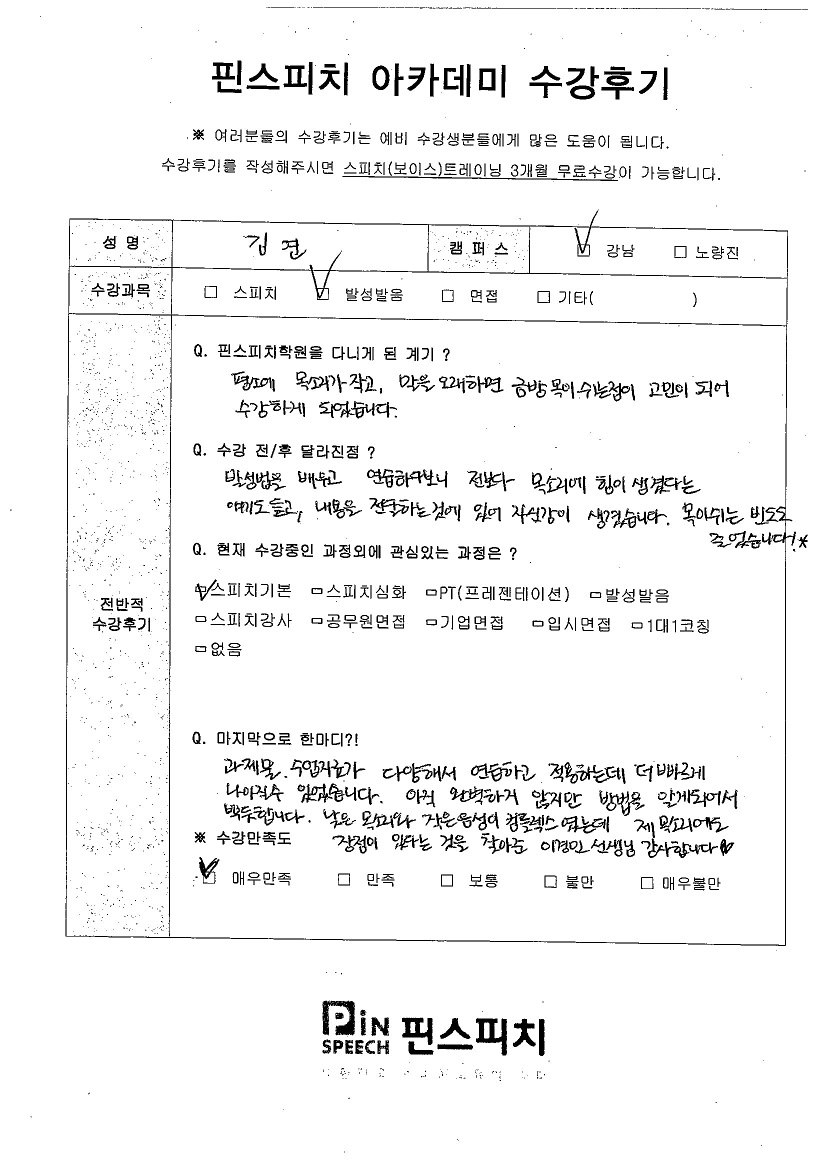 핀스피치 아카데미 수강후기
※ 여러분들의 수강후기는 예비 수강생분들에게 많은 도움이 됩니다.
수강후기를 작성해주시면 스피치(보이스)트레이닝 3개월 무료수강이 가능합니다.
성 명 김 연 캠 퍼 스 ☑ 강남 □ 노량진
수강과목 □ 스피치 ☑ 발성발음 □ 면접 □ 기타( )
Q. 핀스피치학원을 다니게 된 계기 ?
평소에 목소리가 작고, 말을 오래하면 금방 목이 쉬는점이 고민이 되어
수강하게 되었습니다.
Q. 수강 전/후 달라진점 ?
발성법을 배우고 연습하다보니 전보다 목소리에 힘이 생겼다는
얘기도 듣고, 내용을 전달하는것에 있어 자신감이 생겼습니다. 목이쉬는 빈도도
줄었습니다!
Q. 현재 수강중인 과정외에 관심있는 과정은 ?
전반적
수강후기
☑스피치기본 □스피치심화 □PT(프레젠테이션) □발성발음
□스피치강사 □공무원면접 □기업면접 □입시면접 □1대1코칭
□없음
Q. 마지막으로 한마디?!
과제물, 수업자료가 다양해서 연습하고 적용하는데 더 빠르게
나아질수 있었습니다. 아직 완벽하지 않지만 방법을 알게되어서
뿌듯합니다. 낮은 목소리와 작은음성이 컴플렉스였는데 제 목소리에도
※ 수강만족도 장점이 있다는 것을 찾아준 이경민 선생님 감사합니다♥
☑ 매우만족 □ 만족 □ 보통 □ 불만 □ 매우불만
PiN
SPEECH 핀스피치